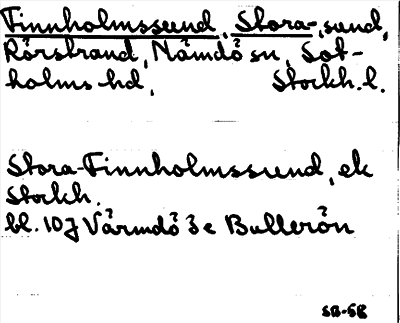 Finnholmssund, Stora-, sund,
Rörstrand, Nämdö sn, Sot-
holms hd, Stockh. l.
Stora Finnholmssund, ek
Stockh.
bl. 107 Värmdö 3 e Bullerön
SB-58